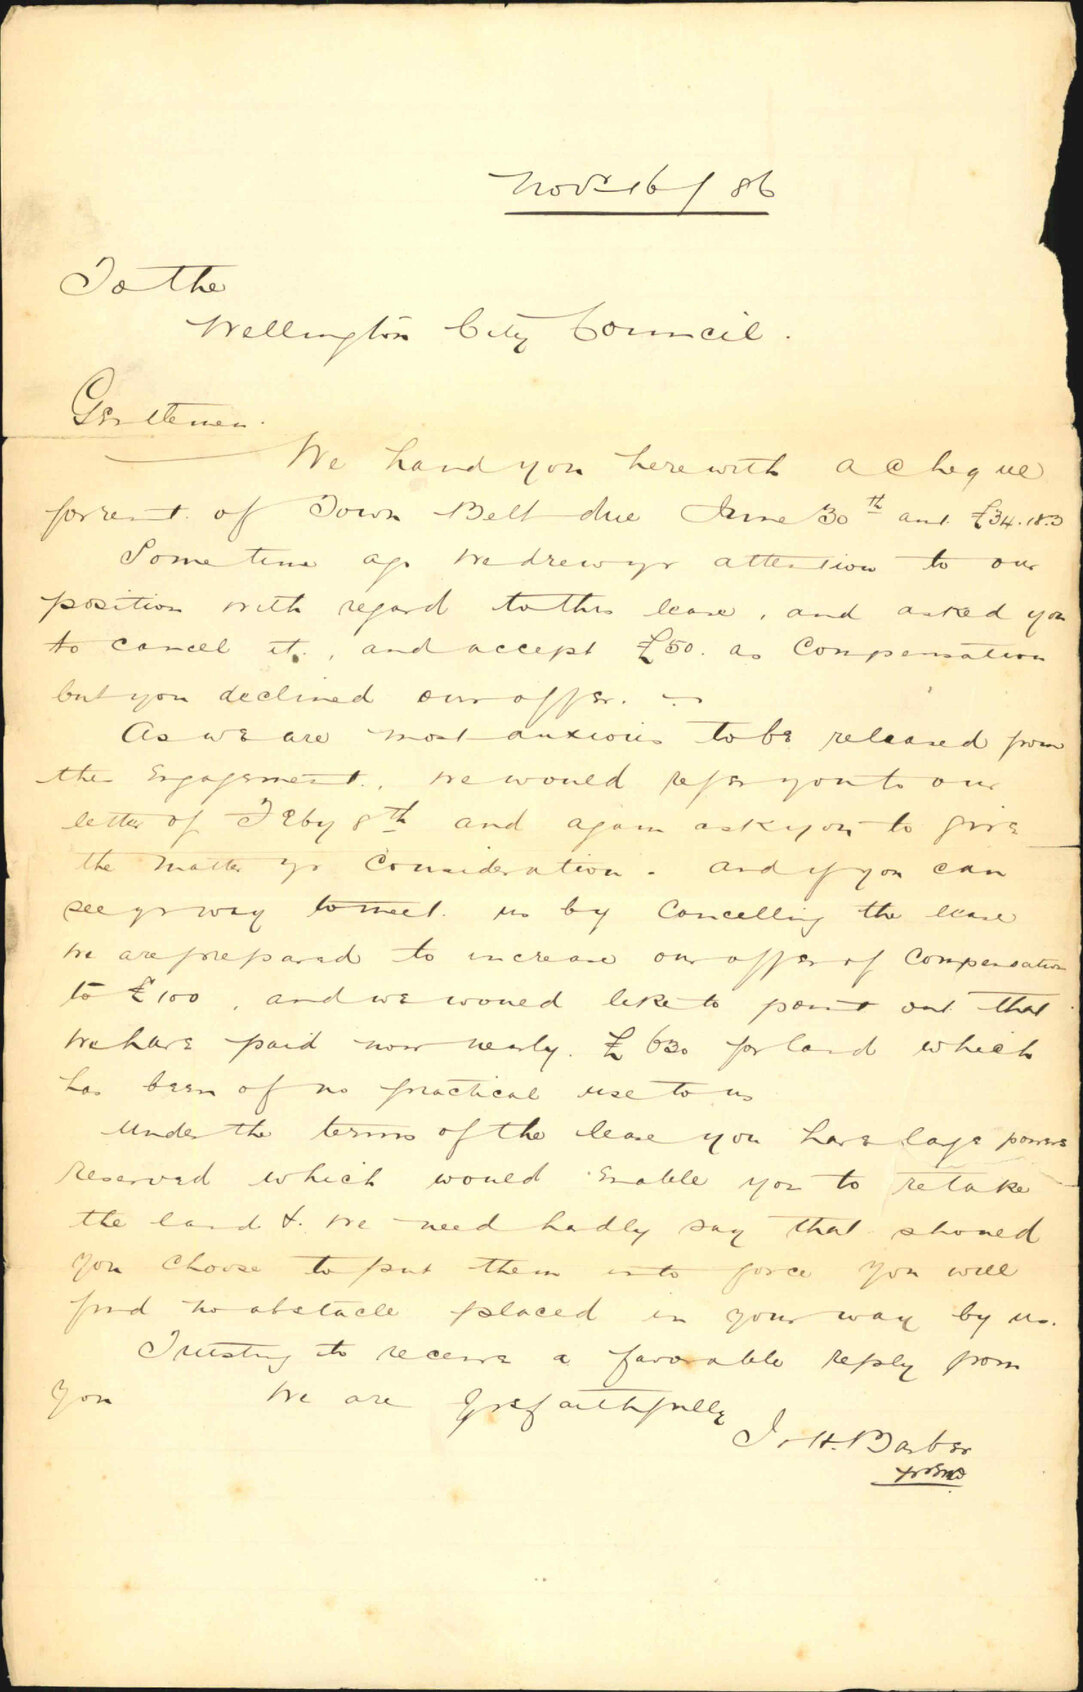 Novr 16 / 86
To the
Wellington City Council.
Gentlemen.
We hand you herewith a cheque
for rent of Town Belt due June 30th amt £34.18.3
Some time ago we drew yr attention to our
position with regard to this lease, and asked you
to cancel it, and accept £50. as Compensation
but you declined our offer. —
As we are most anxious to be released from
the Engagement, we would refer you to our
letter of Feby 8th and again ask you to give
the matter yr Consideration. and if you can
see yr way to meet us by Cancelling the lease
we are prepared to increase our offer of Compensation
to £100, and we would like to point out that
we have paid now nearly £630 for land which
has been of no practical use to us
Under the terms of the lease you have large powers
reserved which would Enable you to retake
the land &. We need hadly say that should
you choose to put them into force you will
find no obstacle placed in your way by us.
Trusting to receive a favorable reply from
you We are Yrs faithfully
J. & H. Barber